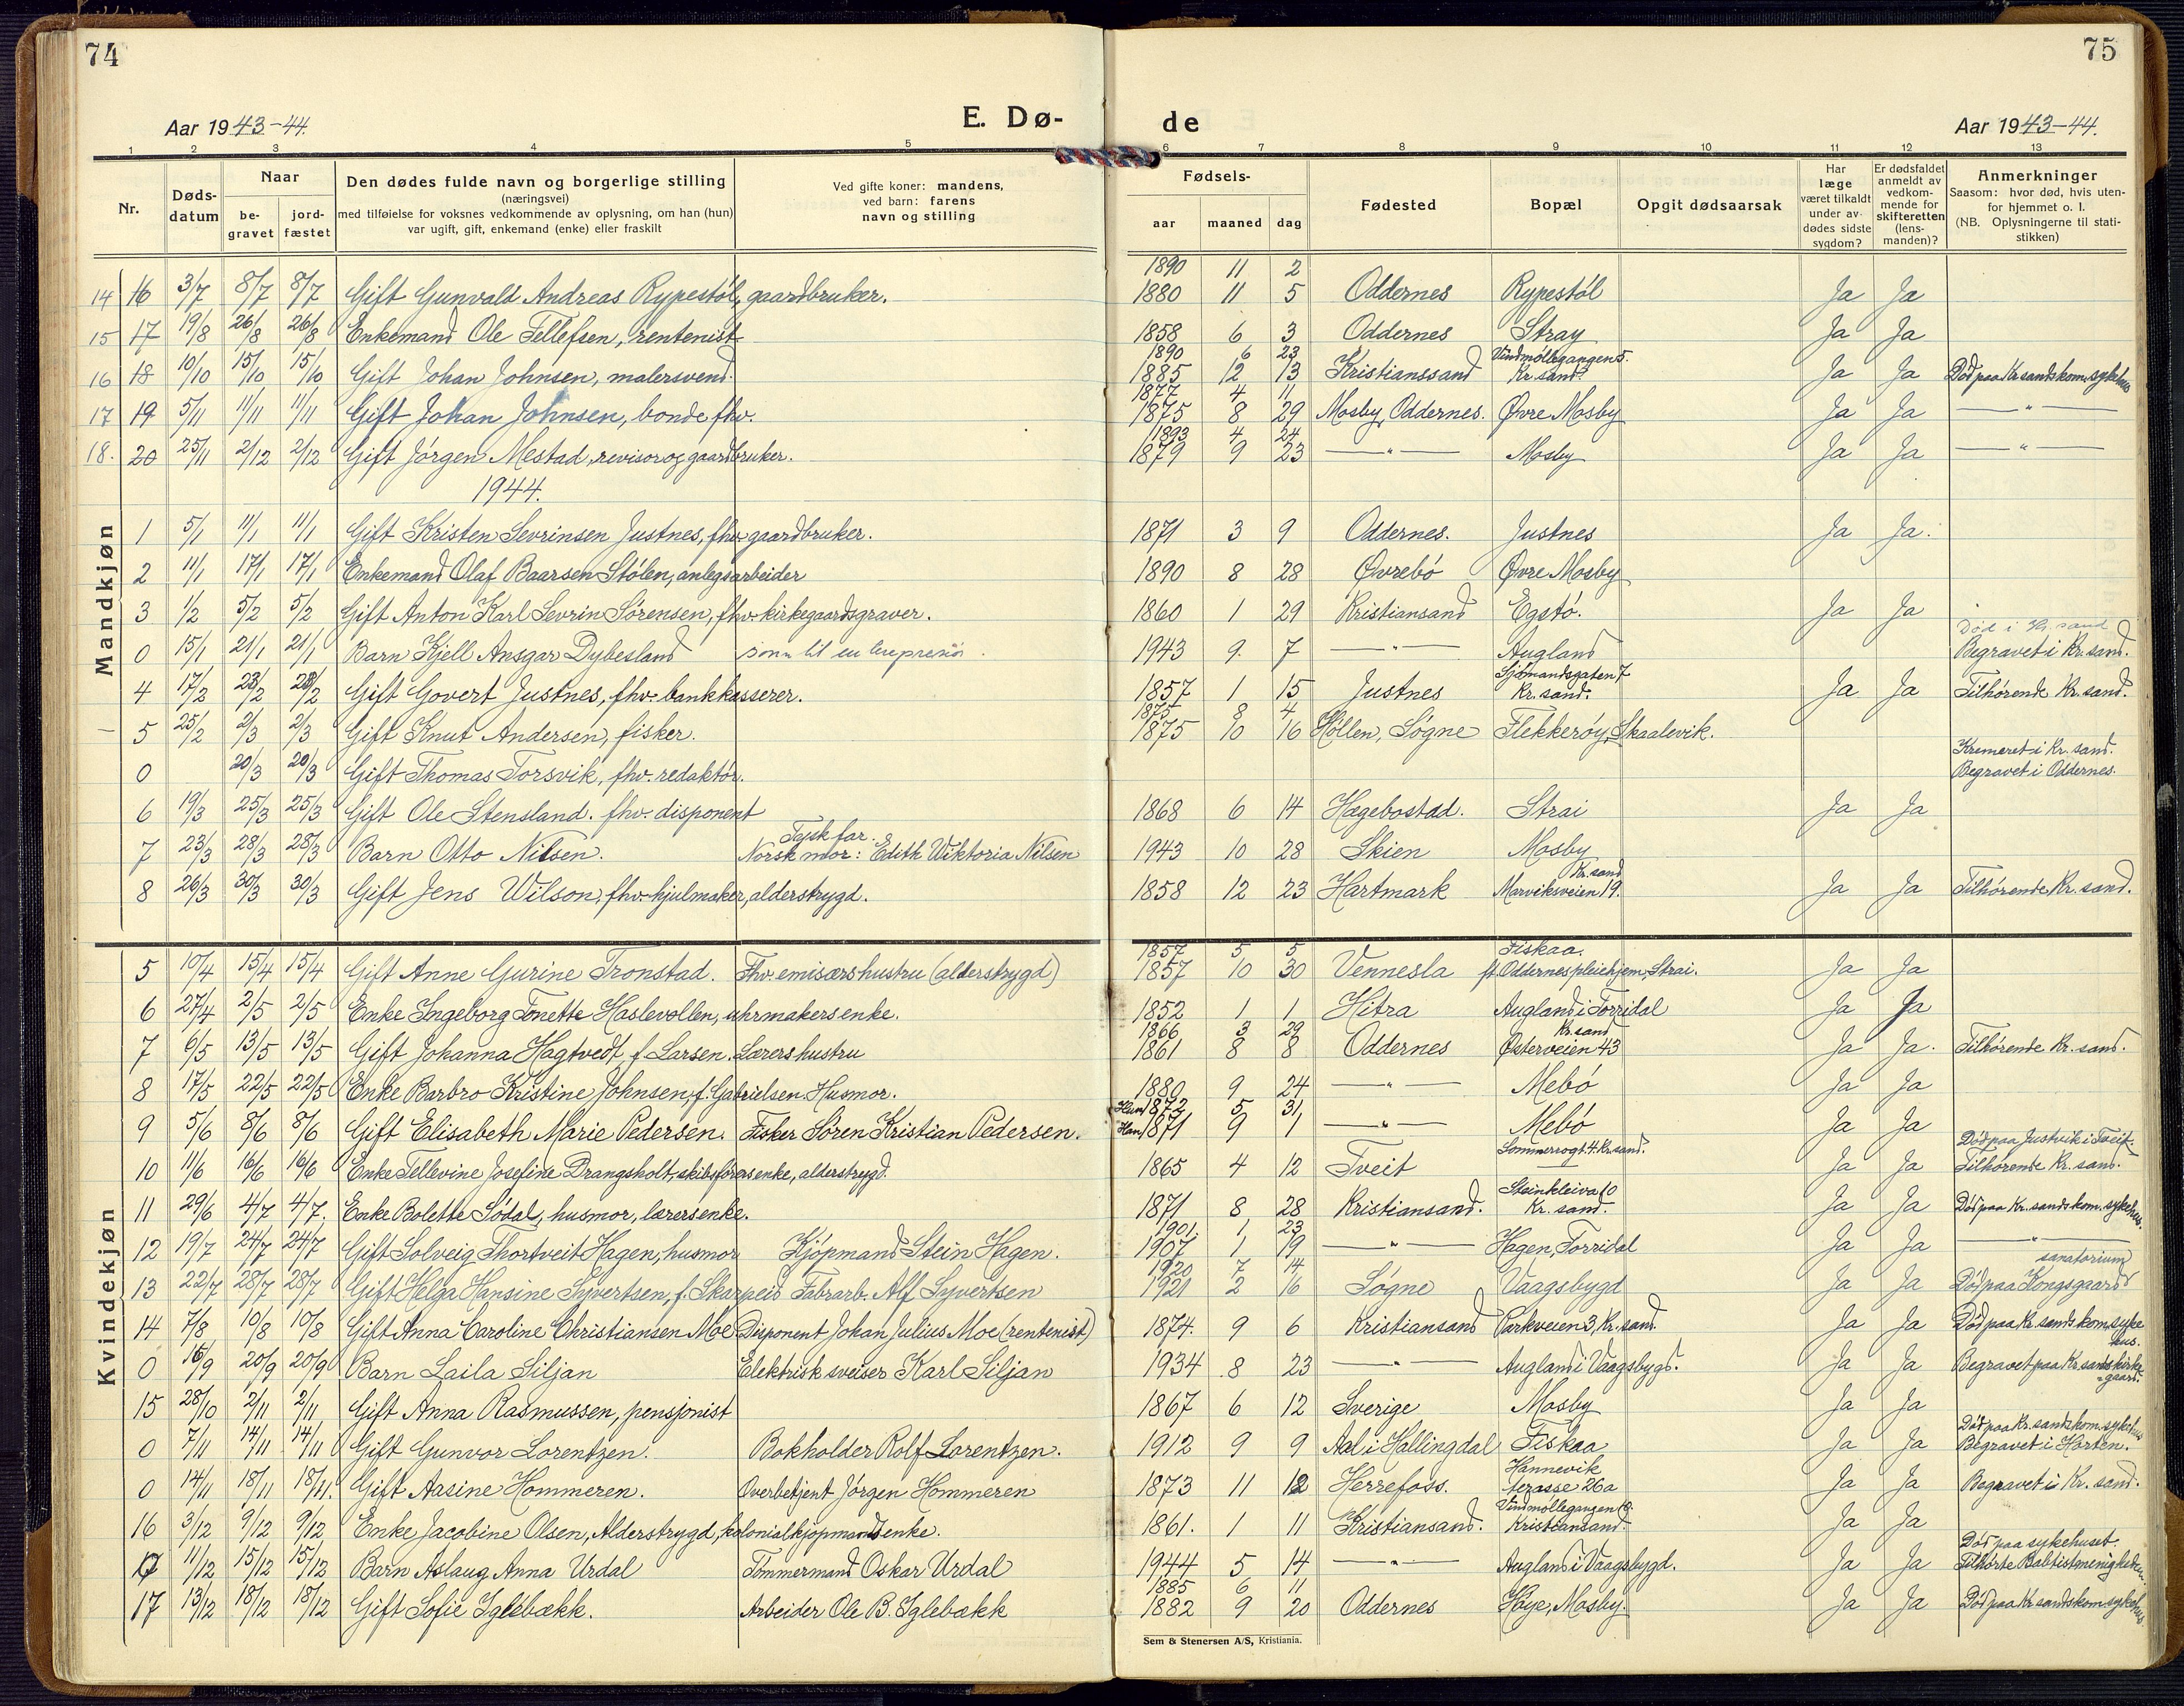 74
75
Aar 1943-44.
E. Dø-
de
Aar 1943-44.
1 2 3 4 5 6 7 8 9 10 11 12 13
Nr.
Døds-
datum
Naar
be-
gravet
jord-
fæstet
Den dødes fulde navn og borgerlige stilling
(næringsvei)
med tilføielse for voksnes vedkommende av oplysning, om han (hun)
var ugift, gift, enkemand (enke) eller fraskilt
Ved gifte koner: mandens,
ved barn: farens
navn og stilling
Fødsels-
aar maaned dag
Fødested
Bopæl
Opgit dødsaarsak
Har
læge
været tilkaldt
under av-
dødes sidste
sygdom?
Er dødsfaldet
anmeldt av
vedkom-
mende for
skifteretten
(lens-
manden)?
Anmerkninger
Saasom: hvor død, hvis uten-
for hjemmet o. l.
(NB. Oplysningerne til stati-
stikken)
Mandkjøn
1890 11 2
14 16 3/7 8/7 8/7 Gift Gunvald Andreas Rypestöl, gaardbruker. 1880 11 5 Oddernes Rypestöl Ja Ja
15 17 19/8 26/8 26/8 Enkemand Ole Tellefsen, rentenist 1858 6 3 Oddernes Stray Ja Ja
1890 6 23 Vindmöllegangen 5.
16 18 10/10 15/10 15/10 Gift Johan Johnsen, malersvend. 1885 12 13 Kristianssand Kr.sand. Ja Ja Död paa Kr.sands kom.sykehus
1877 4 11
17 19 5/11 11/11 11/11 Gift Johan Johnsen, bonde fhv. 1875 8 29 Mosby, Oddernes. Øvre Mosby Ja Ja — " —
1893 4 24
18. 20 25/11 2/12 2/12 Gift Jörgen Mestad, revisor og gaardbruker. 1879 9 23 — " — Mosby Ja Ja — " —
1944.
1 5/1 11/1 11/1 Gift Kristen Sevrinsen Justnes, fhv. gaardbruker. 1871 3 9 Oddernes. Justnes Ja Ja.
2 11/1 17/1 17/1 Enkemand Olaf Baarsen Stölen, anlegsarbeider 1890 8 28 Øvrebö Øvre Mosby
3 1/2 5/2 5/2 Gift Anton Karl Sevrin Sörensen, fhv. kirkegaardsgraver. 1860 1 29 Kristiansand Egstö. Ja Ja
Död i Kr. sand
0 15/1 21/1 21/1 Barn Kjell Ansgar Dybesland sönn til en 1943 9. 7 — " — Augland Begravet i Kr. sand.
Sjömandsgaten 7
4 17/2 23/2 23/2 Gift Govert Justnes, fhv. bankkasserer. 1857 1 15 Justnes Kr. sand. Ja Ja Tilhörende Kr. sand.
1875 8 4
— 5 25/2 2/3 2/3 Gift Knut Andersen, fisker. 1875 10 16 Höllen, Sögne Flekkeröy, Skaalevik.
Kremeret i Kr. sand.
0 20/3 20/3 Gift Thomas Torsvik, fhv. redaktör. Begravet i Oddernes.
6 19/3 25/3 25/3 Gift Ole Stensland. fhv. disponent 1868 6 14 Hægebostad. Strai Ja Ja
Tysk far.
7 23/3 28/3 28/3 Barn Otto Nilsen. Norsk mor: Edith Wiktoria Nilsen 1943 10 28 Skien Mosby
Kr. sand
8 26/3 30/3 30/3 Gift Jens Wilson, fhv. hjulmaker, alderstrygd. 1858 12 23 Hartmark Marviksveien 19. Ja Ja Tilhörende Kr. sand.
Kvindekjøn
1857 5 5 Fiskaa.
5 10/4 15/4 15/4 Gift Anne Gurine Tronstad. Fhv. emisærs hustru (alderstrygd) 1857 10 30 Vennesla Oddernes pleiehjem, Strai. Ja Ja
6 27/4 2/5 2/5 Enke Ingeborg Tonette Haslevollen, uhrmakersenke. 1852 1 1 Hitra Augland i Torridal Ja Ja
1866 3 29 Kr. sand
7 6/5 13/5 13/5 Gift Johanna Hagtvedt, f. Larsen. Lærers hustru 1861 8 8 Oddernes Østerveien 43 Ja Ja. Tilhörende Kr. sand.
8 17/5 22/5 22/5 Enke Barbro Kristine Johnsen, f. Gabrielsen. Husmor. 1880 9 24 — " — Mebö Ja Ja
Hun 1872 5 31
9 5/6 8/6 8/6 Gift Elisabeth Marie Pedersen. Fisker Sören Kristian Pedersen. Han 1871 9 1 — " — Mebö Ja Ja
Sommerrogt. 4. Kr. sand. Död paa Justvik i Tveit.
10 11/6 16/6 16/6 Enke Tellevine Josefine Drangsholt, skibsförersenke, alderstrygd. 1865 4 12 Tveit Ja Ja Tilhörende Kr. sand.
Steinkleiva 10
11 29/6 4/7 4/7. Enke Bolette Södal, husmor, lærersenke. 1871 8 28 Kristiansand. Kr. sand. Ja Ja Död paa Kr. sands kom. sykehus.
1901 1 23
12 19/7 24/7 24/7 Gift Solveig Thortveit Hagen, husmor Kjöpmand Stein Hagen. 1907 1 19 — " — Hagen, Torridal Ja Ja — " —
1920 7 14 sanatorium
13 22/7 28/7 28/7 Gift Helga Hansine Syvertsen, f. Skarpeid Fabrarb. Alf Syvertsen 1921 2 16 Sögne Vaagsbygd Ja Ja Död paa Kongsgaard
14 7/8 10/8 10/8 Gift Anna Caroline Christiansen Moe Disponent Johan Julius Moe (rentenist) 1874. 9 6 Kristiansand Parkveien 3, Kr. sand. Ja Ja Död paa Kr. sands kom. syke
hus.
0 15/9 20/9 20/9 Barn Laila Siljan Elektrisk sveiser Karl Siljan 1934 8 23 — " — Augland i Vaagsbygd. Ja Ja Begravet paa Kr. sands kirke
-gaard.
15 28/10 2/11 2/11 Gift Anna Rasmussen, pensjonist 1867 6 12 Sverige Mosby Ja Ja
Död paa Kr. sands kom. sykehus
0 7/11 14/11 14/11 Gift Gunvor Lorentzen. Bokholder Rolf Lorentzen. 1912 9 9 Aal i Hallingdal Fiskaa Ja Ja Begravet i Horten.
Hannevik
0 14/11 18/11 18/11. Gift Aasine Hommeren. Overbetjent Jörgen Hommeren 1873 11 12 Herrefoss. terasse 26a Ja Ja Begravet i Kr. sand.
Vindmöllegangen 10.
16 3/12 9/12 9/12 Enke Jacobine Olsen, Alderstrygd, kolonialkjöpmandsenke. 1861. 1 11 Kristiansand. Kristiansand. Ja Ja
Död paa sykehuset.
0 11/12 15/12 15/12 Barn Aslaug Anna Urdal Tömmermand Oskar Urdal 1944 5 14 — " — Augland i Vaagsbygd. Ja Ja Tilhörte Babtistmenigheten.
1885 6 11
17 13/12 18/12 18/12 Gift Sofie Iglebækk. Arbeider Ole B. Iglebækk 1882 9 20 Oddernes Höye, Mosby. Ja Ja Död paa Kr sands kom. sykehus
Sem & Stenersen A/S, Kristiania.